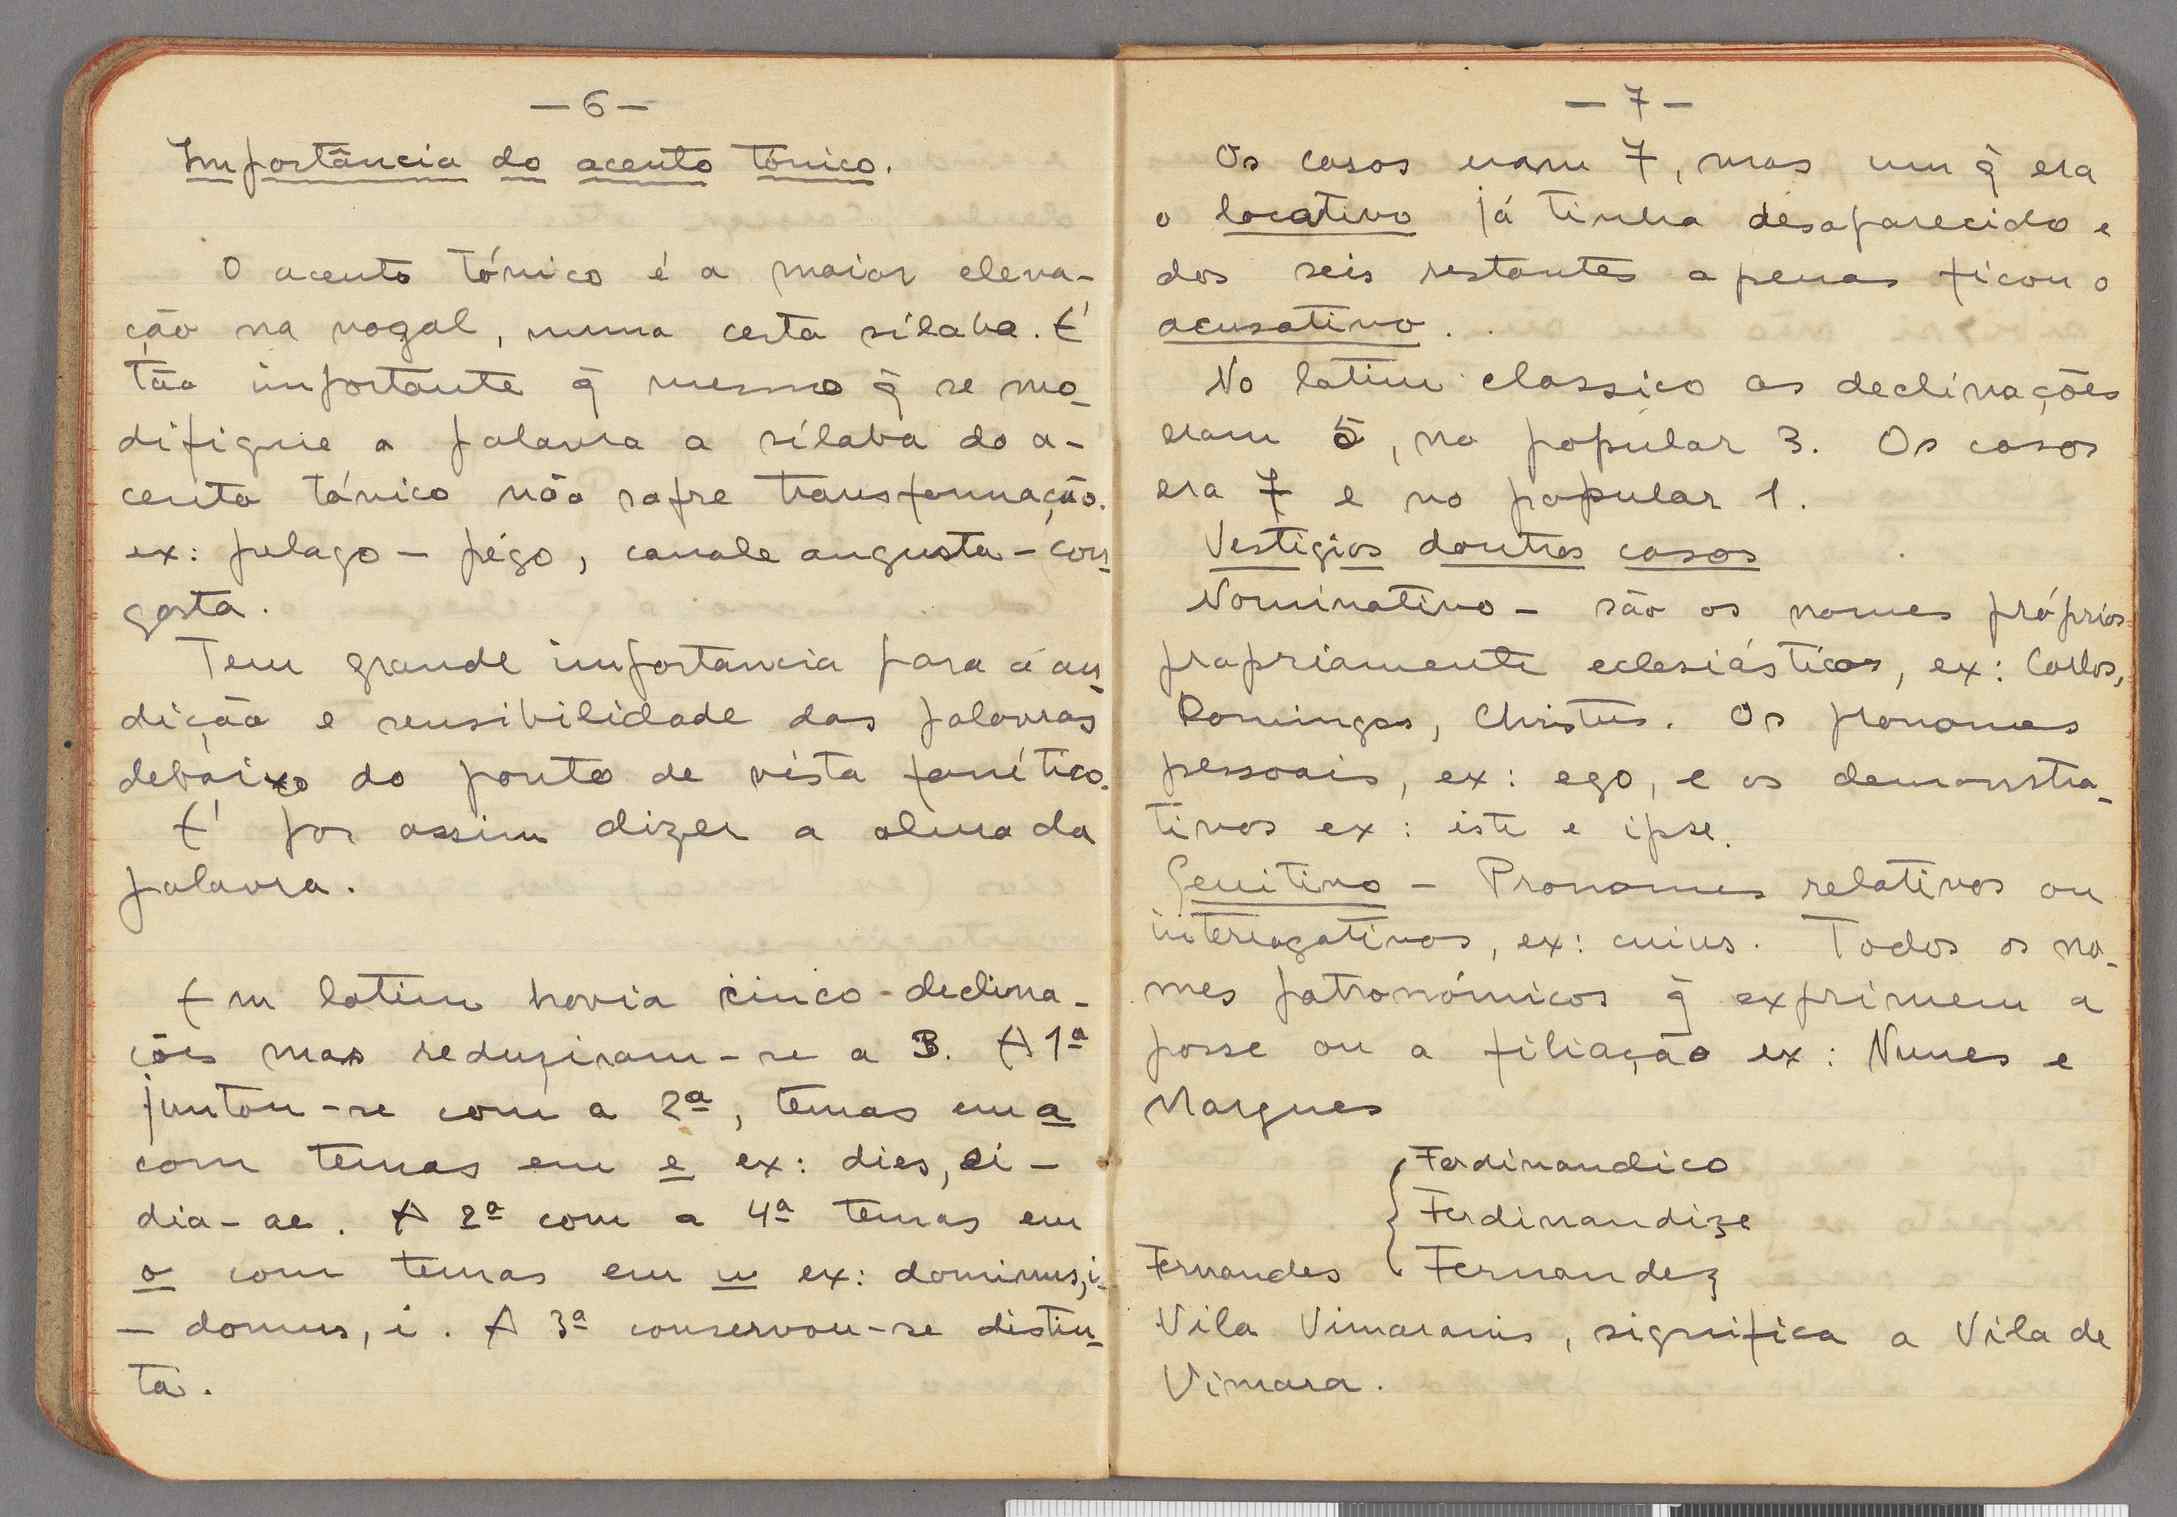 — 6 —
Importância do acento tónico.
O acento tónico é a maior eleva-
ção na vogal, numa certa sílaba. É
tão importante q̃ mesmo q̃ se mo-
difique a palavra a sílaba do a-
cento tónico não sofre transformação.
ex: pelago — pégo, canale angusta — con-
gosta.
Tem grande importancia para a au-
dição e sensibilidade das palavras
debaixo do ponto de vista fonético.
É por assim dizer a alma da
palavra.
Em latim havia cinco declina-
ções mas reduziram-se a 3. A 1ª
juntou-se com a 2ª, temas em a
com temas em e ex: dies, ei —
dia - ae. A 2ª com a 4ª temas em
o com temas em u ex: dominus, i-
— domus, i. A 3ª conservou-se distin-
ta.
— 7 —
Os casos eram 7, mas um q̃ era
o locativo já tinha desaparecido e
dos seis restantes apenas ficou o
acusativo.
No latim classico as declinações
eram 5, no popular 3. Os casos
era 7 e no popular 1.
Vestigios doutros casos
Nominativo — são os nomes próprios
propriamente eclesiásticos, ex: Carlos,
Domingos, Christus. Os pronomes
pessoais, ex: ego, e os demonstra-
tivos ex: iste e ipse.
Genitivo — Pronomes relativos ou
interrogativos, ex: cuius. Todos os no-
mes patronómicos q̃ exprimem a
posse ou a filiação ex: Nunes e
Marques
Ferdinandico
Ferdinandize
Fernandes { Fernandez
Vila Vimaranis, significa a Vila de
Vimara.